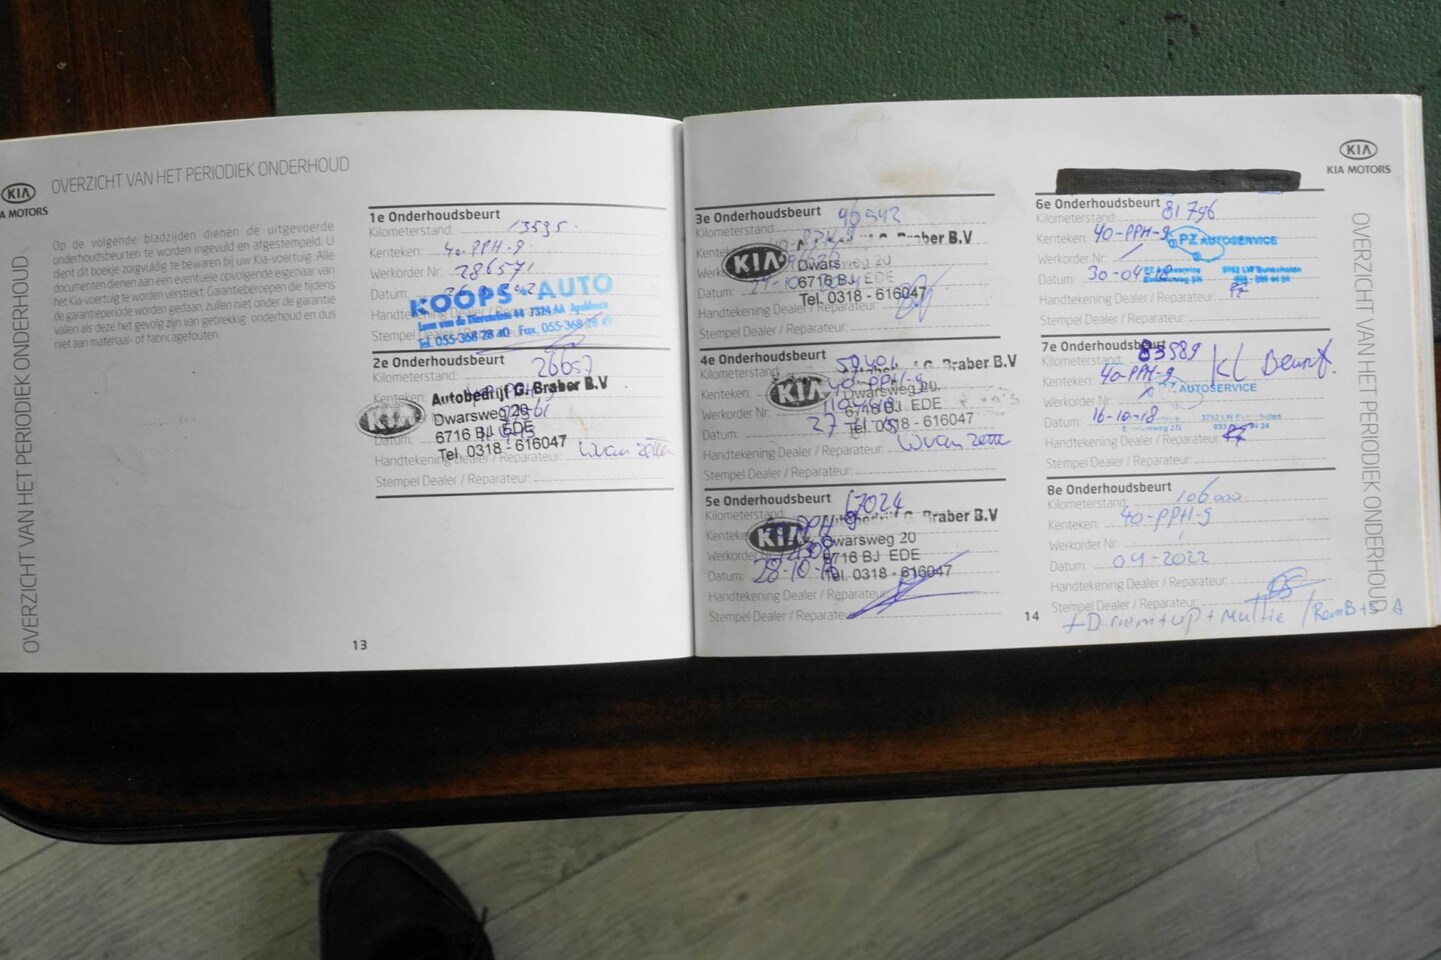 KIA
KIA MOTORS
OVERZICHT VAN HET PERIODIEK ONDERHOUD
OVERZICHT VAN HET PERIODIEK ONDERHOUD
Op de volgende bladzijden dienen de uitgevoerde
onderhoudsbeurten te worden ingevuld en afgestempeld. U
dient dit boekje zorgvuldig te bewaren bij uw Kia-voertuig. Alle
documenten dienen aan een eventuele opvolgende eigenaar van
het Kia-voertuig te worden verstrekt. Garantieberoepen die tijdens
de garantieperiode worden gedaan, zullen niet onder de garantie
vallen als deze het gevolg zijn van gebrekkig onderhoud en dus
niet aan materiaal- of fabricagefouten.
1e Onderhoudsbeurt
Kilometerstand: 13595
Kenteken: 40-PPH-9
Werkorder Nr: 286571
Datum:
KOOPS AUTO
7324 AA Apeldoorn
Tel. 055-368 28 40 Fax. 055-368
Stempel Dealer / Reparateur:
2e Onderhoudsbeurt
Kilometerstand: 26657
Kenteken:
Autobedrijf G. Braber B.V
Dwarsweg 20
6716 BJ EDE
Tel. 0318 - 616047
Datum:
Handtekening Dealer / Reparateur:
Stempel Dealer / Reparateur:
13
3e Onderhoudsbeurt 40942
Kilometerstand:
Kenteken:
KIA
G. Braber B.V
Dwarsweg 20
6716 BJ EDE
Tel. 0318 - 616047
Datum:
Handtekening Dealer / Reparateur:
Stempel Dealer / Reparateur:
4e Onderhoudsbeurt
Kilometerstand: 50401
Kenteken: 40-PPH-9
KIA
G. Braber B.V
Dwarsweg 20
6716 BJ EDE
Tel. 0318 - 616047
Werkorder Nr:
Datum: 27
Handtekening Dealer / Reparateur:
Stempel Dealer / Reparateur:
5e Onderhoudsbeurt 67024
Kilometerstand:
Kenteken:
KIA
G. Braber B.V
Dwarsweg 20
6716 BJ EDE
Tel. 0318 - 616047
Werkorder
Datum: 28-10-
Handtekening Dealer / Reparateur:
Stempel Dealer / Reparateur:
14
KIA
KIA MOTORS
6e Onderhoudsbeurt
Kilometerstand: 81796
Kenteken: 40-PPH-9
PZ AUTOSERVICE
Werkorder Nr:
Datum: 30-04-18
Handtekening Dealer / Reparateur:
Stempel Dealer / Reparateur:
7e Onderhoudsbeurt
Kilometerstand: 83589 kl Beurt
Kenteken: 40-PPH-9
AUTOSERVICE
Werkorder Nr:
Datum: 16-10-18
Handtekening Dealer / Reparateur:
Stempel Dealer / Reparateur:
8e Onderhoudsbeurt
Kilometerstand: 106000
Kenteken: 40-PPH-9
Werkorder Nr:
Datum: 04-2022
Handtekening Dealer / Reparateur:
Stempel Dealer / Reparateur:
+ D-riem + WP + Multie /
OVERZICHT VAN HET PERIODIEK ONDERHOUD